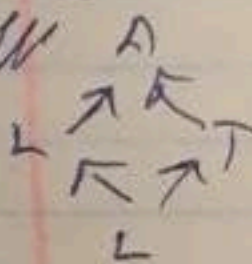 A
L T
L